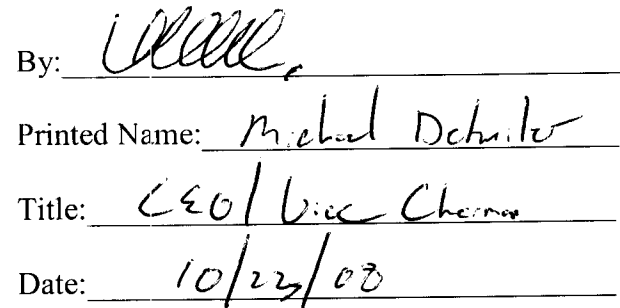 By:
Printed Name: Michael Detwiler
Title: CEO/Vice Chairman
Date: 10/23/08